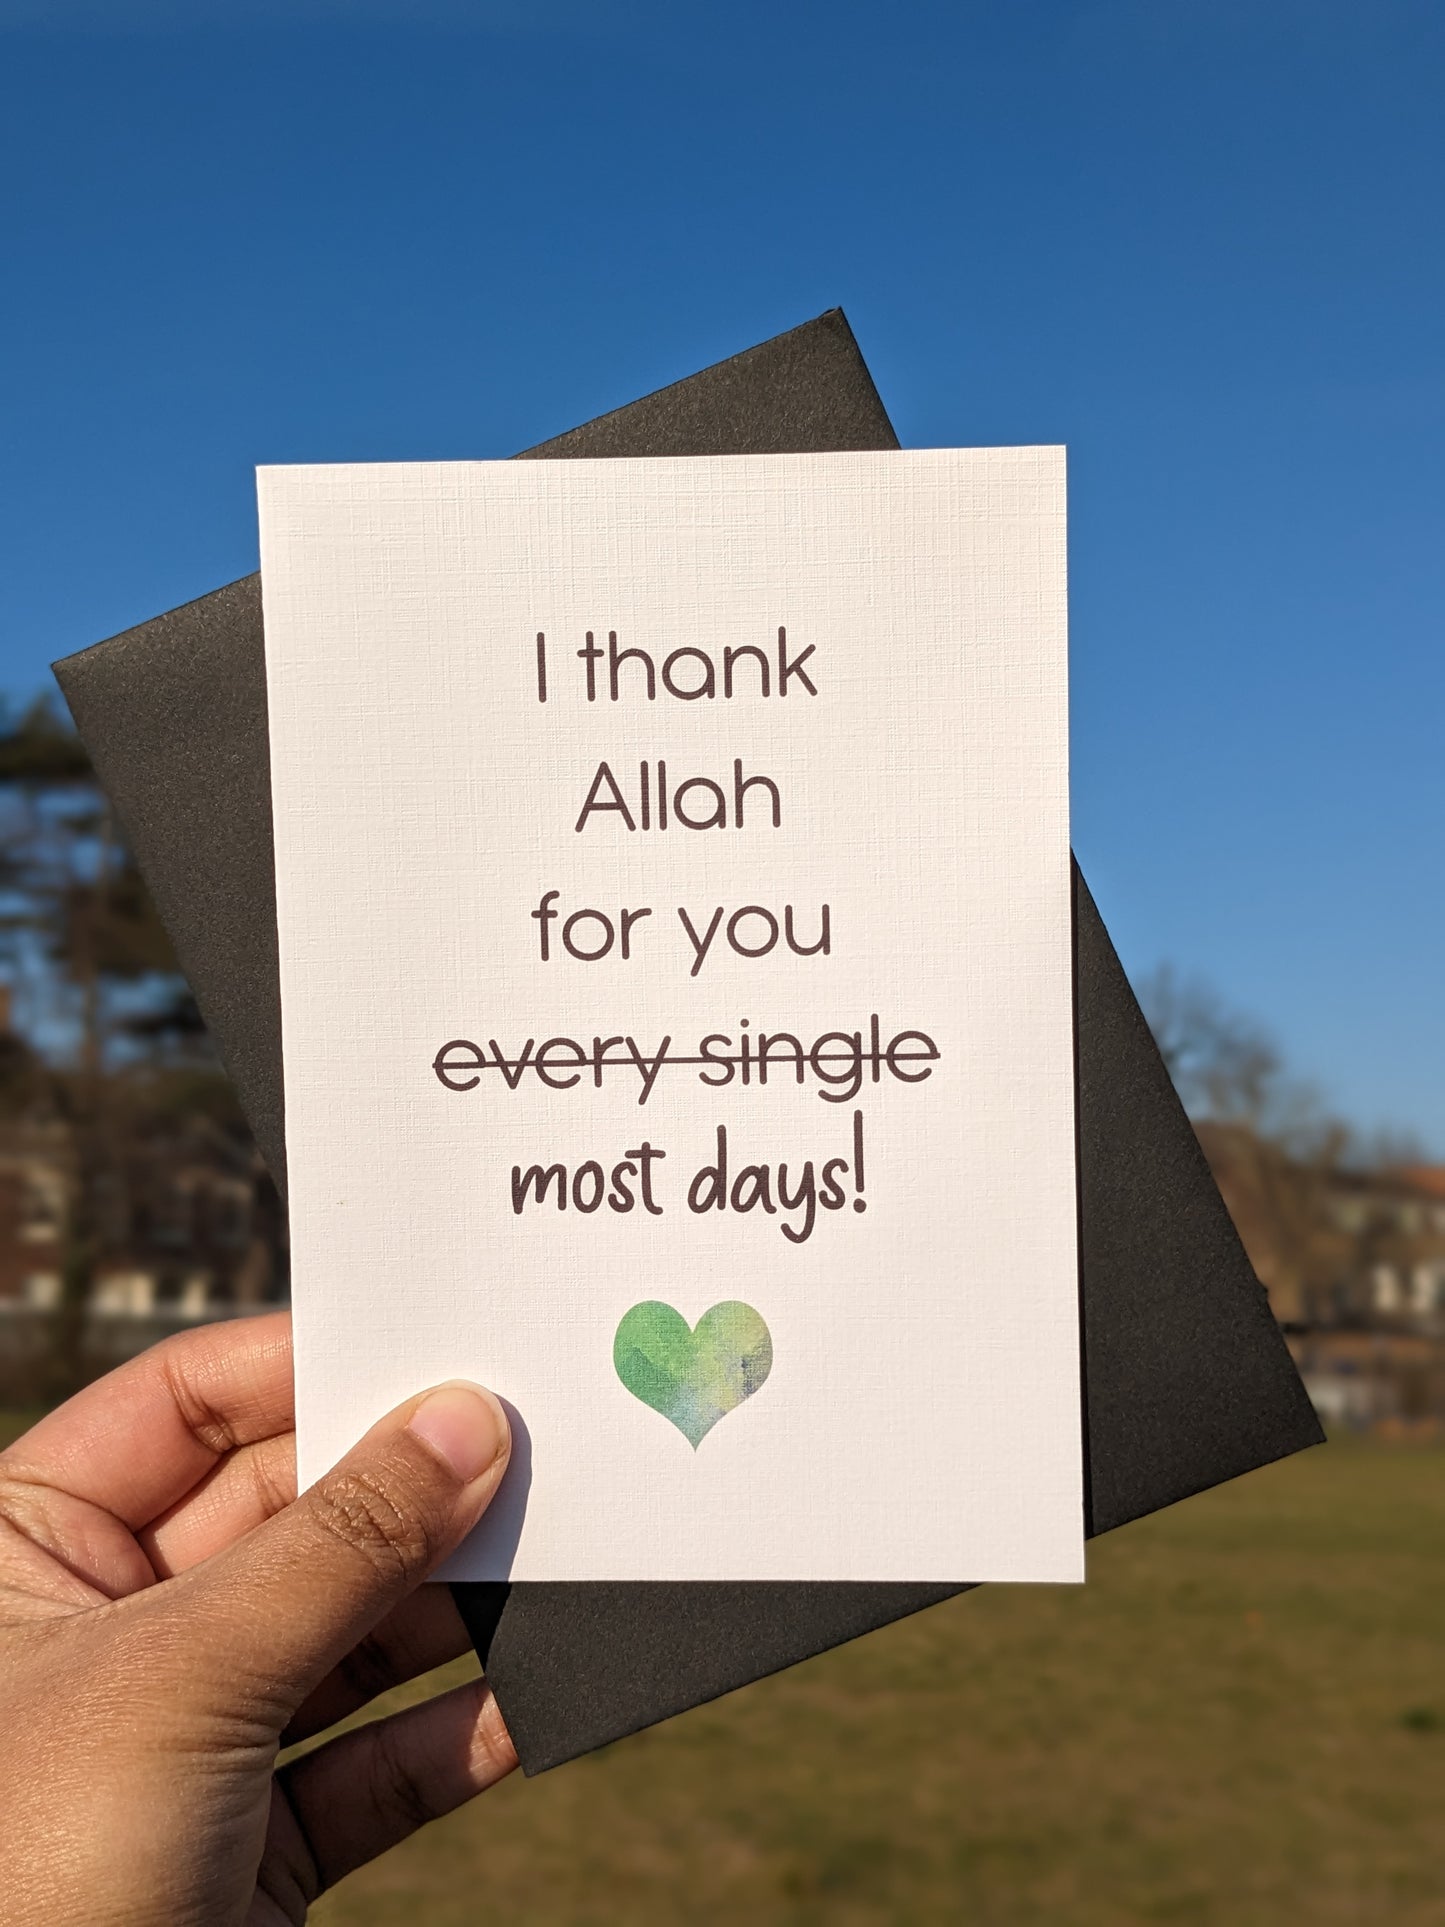 I thank
Allah
for you
every single
most days!